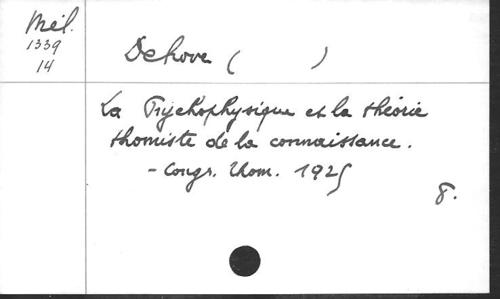 Mél.
1339
14
Dehove ( )
La Psychophysique et la théorie
thomiste de la connaissance.
- Congr. Thom. 1925
8.